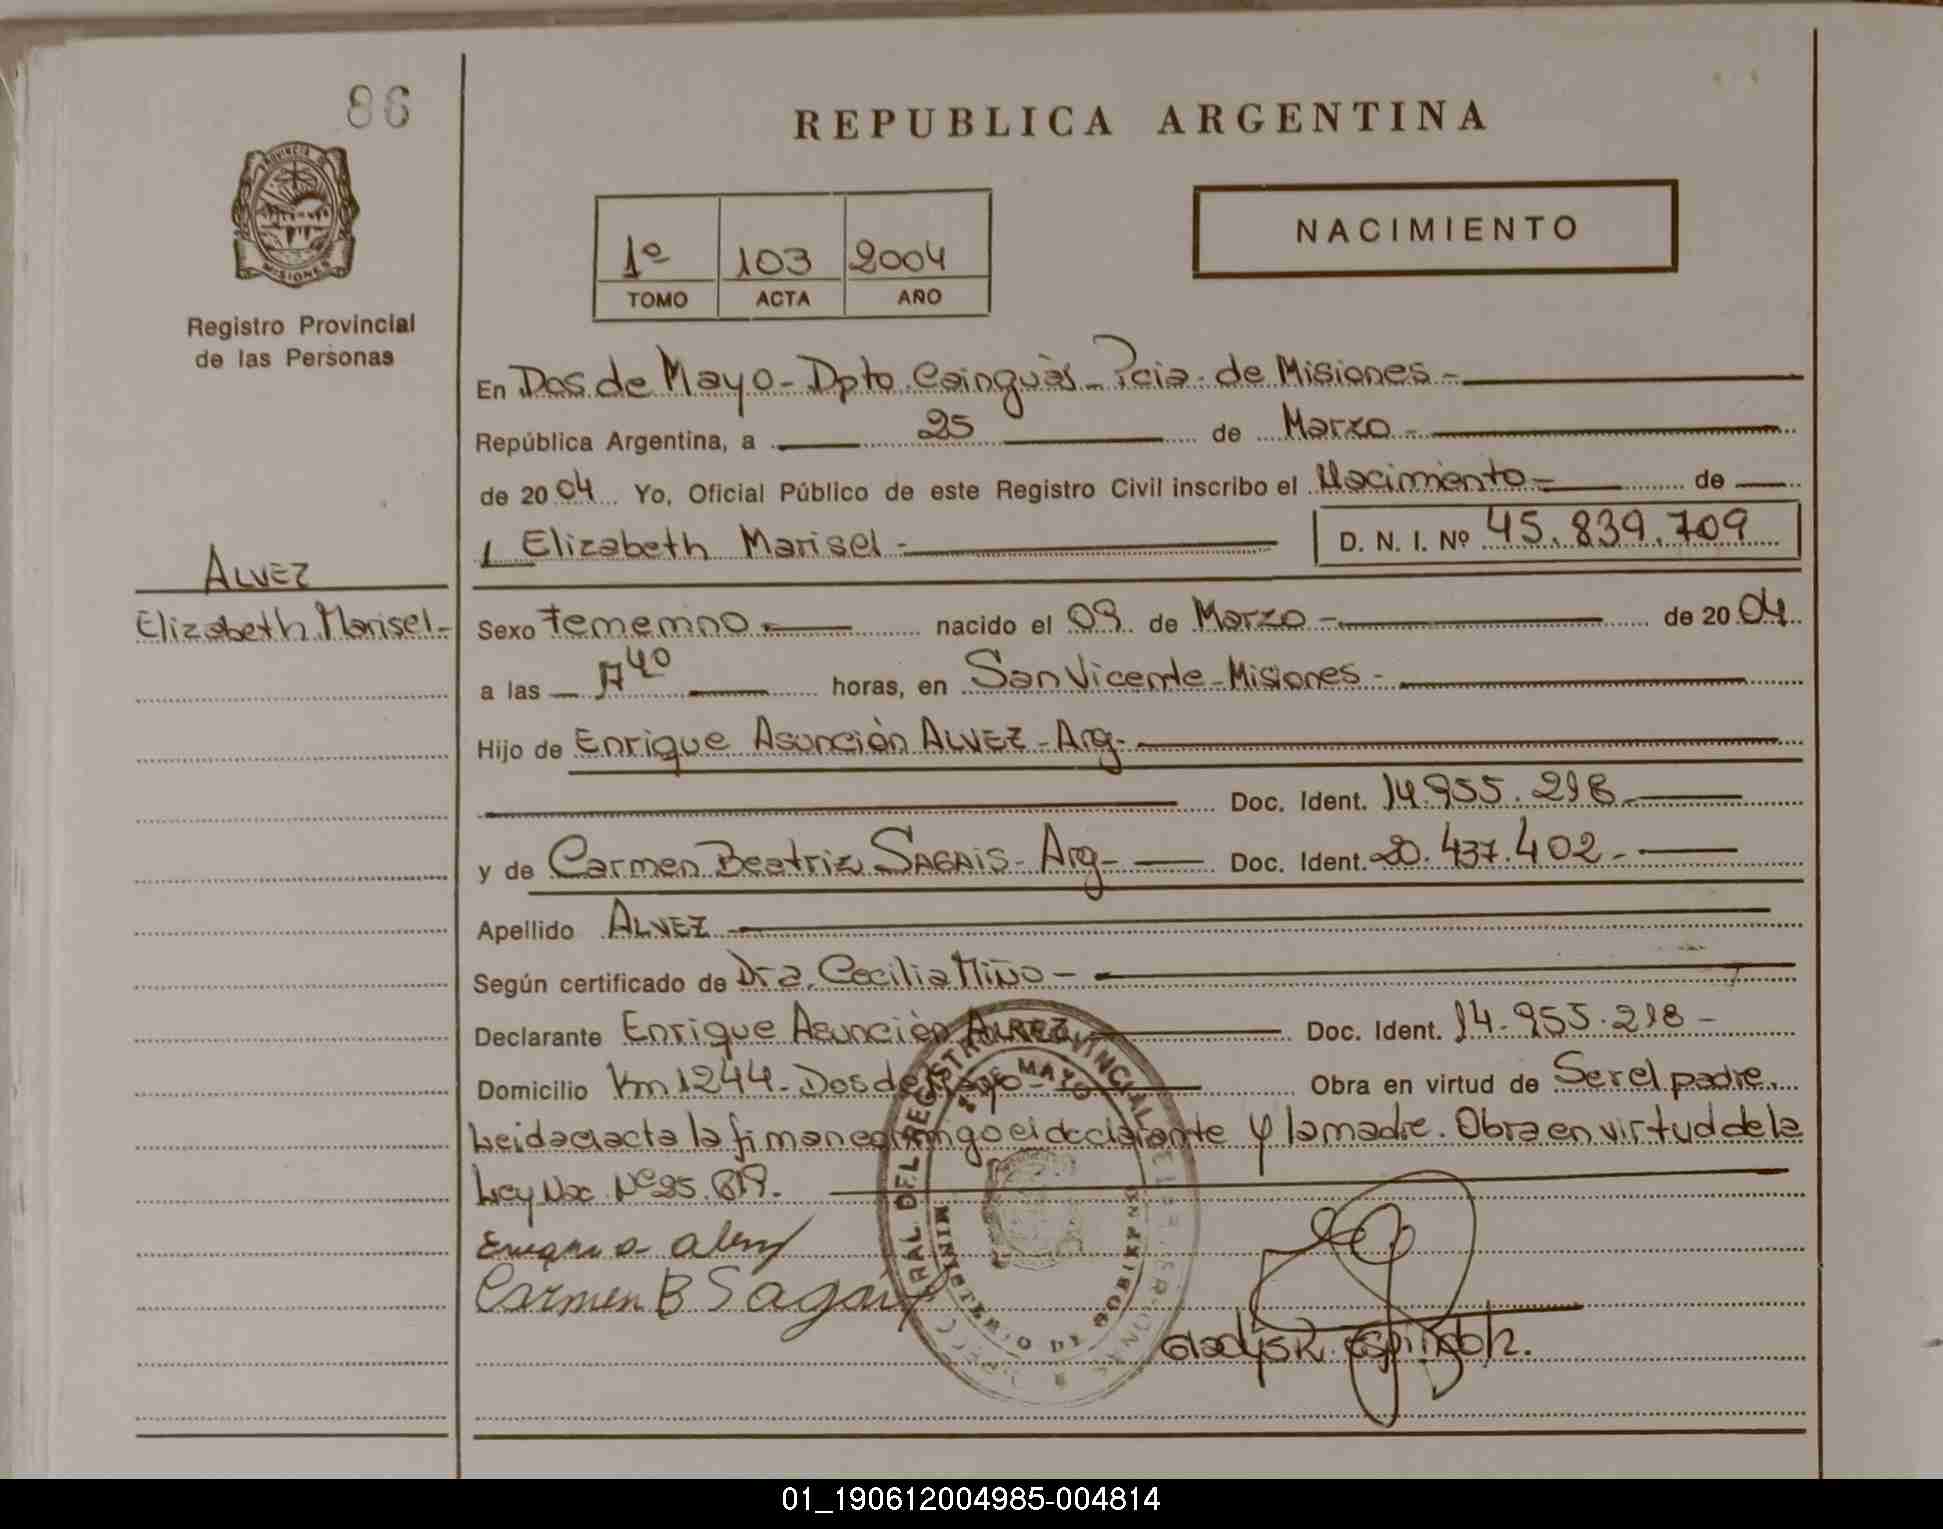 86
REPUBLICA ARGENTINA
PROVINCIA DE
MISIONES
Registro Provincial
de las Personas
1º 103 2004
TOMO ACTA AÑO
NACIMIENTO
En Dos de Mayo - Dpto Cainguàs - Pcia. de Misiones -
República Argentina, a 25 de Marzo -
de 2004 Yo, Oficial Público de este Registro Civil inscribo el Nacimiento - de
Elizabeth Marisel - D. N. I. Nº 45.839.709
ALVEZ
Elizabeth Marisel -
Sexo femenino nacido el 09 de Marzo - de 2004
a las 17 40 horas, en San Vicente - Misiones -
Hijo de Enrique Asunciòn ALVEZ - Arg -
Doc. Ident. 14.955.218 -
y de Carmen Beatriz SAGAIS - Arg - Doc. Ident. 20.437.402 -
Apellido ALVEZ
Según certificado de Dra. Cecilia Miño -
Declarante Enrique Asunciòn ALVEZ Doc. Ident. 14.955.218 -
Domicilio Km 1244 - Dos de Mayo - Obra en virtud de Ser el padre.
Leida el acta la firman conmigo el declarante y la madre. Obra en virtud de la
Ley Nac. Nº 25.819.
Carmen B Sagais
Gladys R. Espindola.
REGISTRO PROVINCIAL DE LAS PERSONAS
DE MAYO
MINISTERIO DE GOBIERNO
01_190612004985-004814